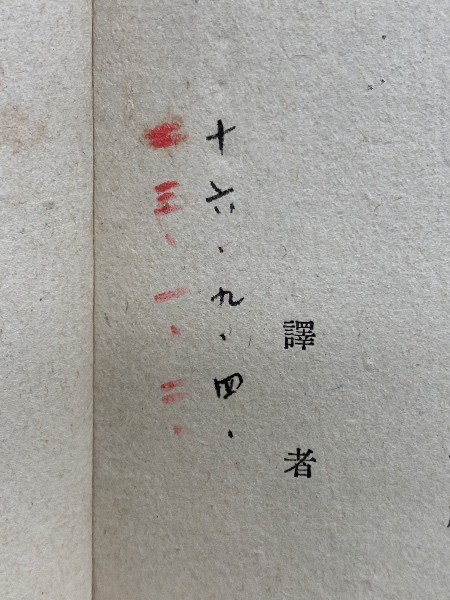 譯者
十六、九、四、
三、一、二、